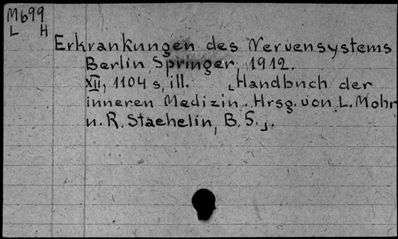 M699
L H
Erkrankungen des Nervensystems
Berlin, Springer, 1912.
XII, 1104 s, ill. „Handbuch der
inneren Medizin. Hrsg. von L. Mohr
u. R. Staehelin, B. 5.„.